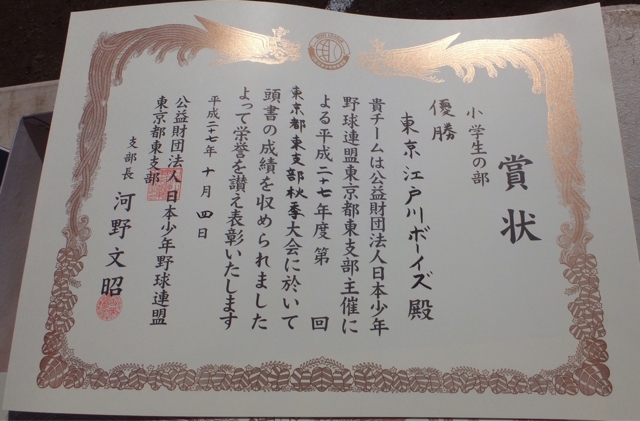 賞状
小学生の部
優勝
東京江戸川ボーイズ殿
貴チームは公益財団法人日本少年
野球連盟東京都東支部主催に
よる平成二十七年度第　回
東京都東支部秋季大会に於いて
頭書の成績を収められました
よって栄誉を讃え表彰いたします
平成二十七年十月四日
公益財団法人日本少年野球連盟
東京都東支部
支部長 河野文昭